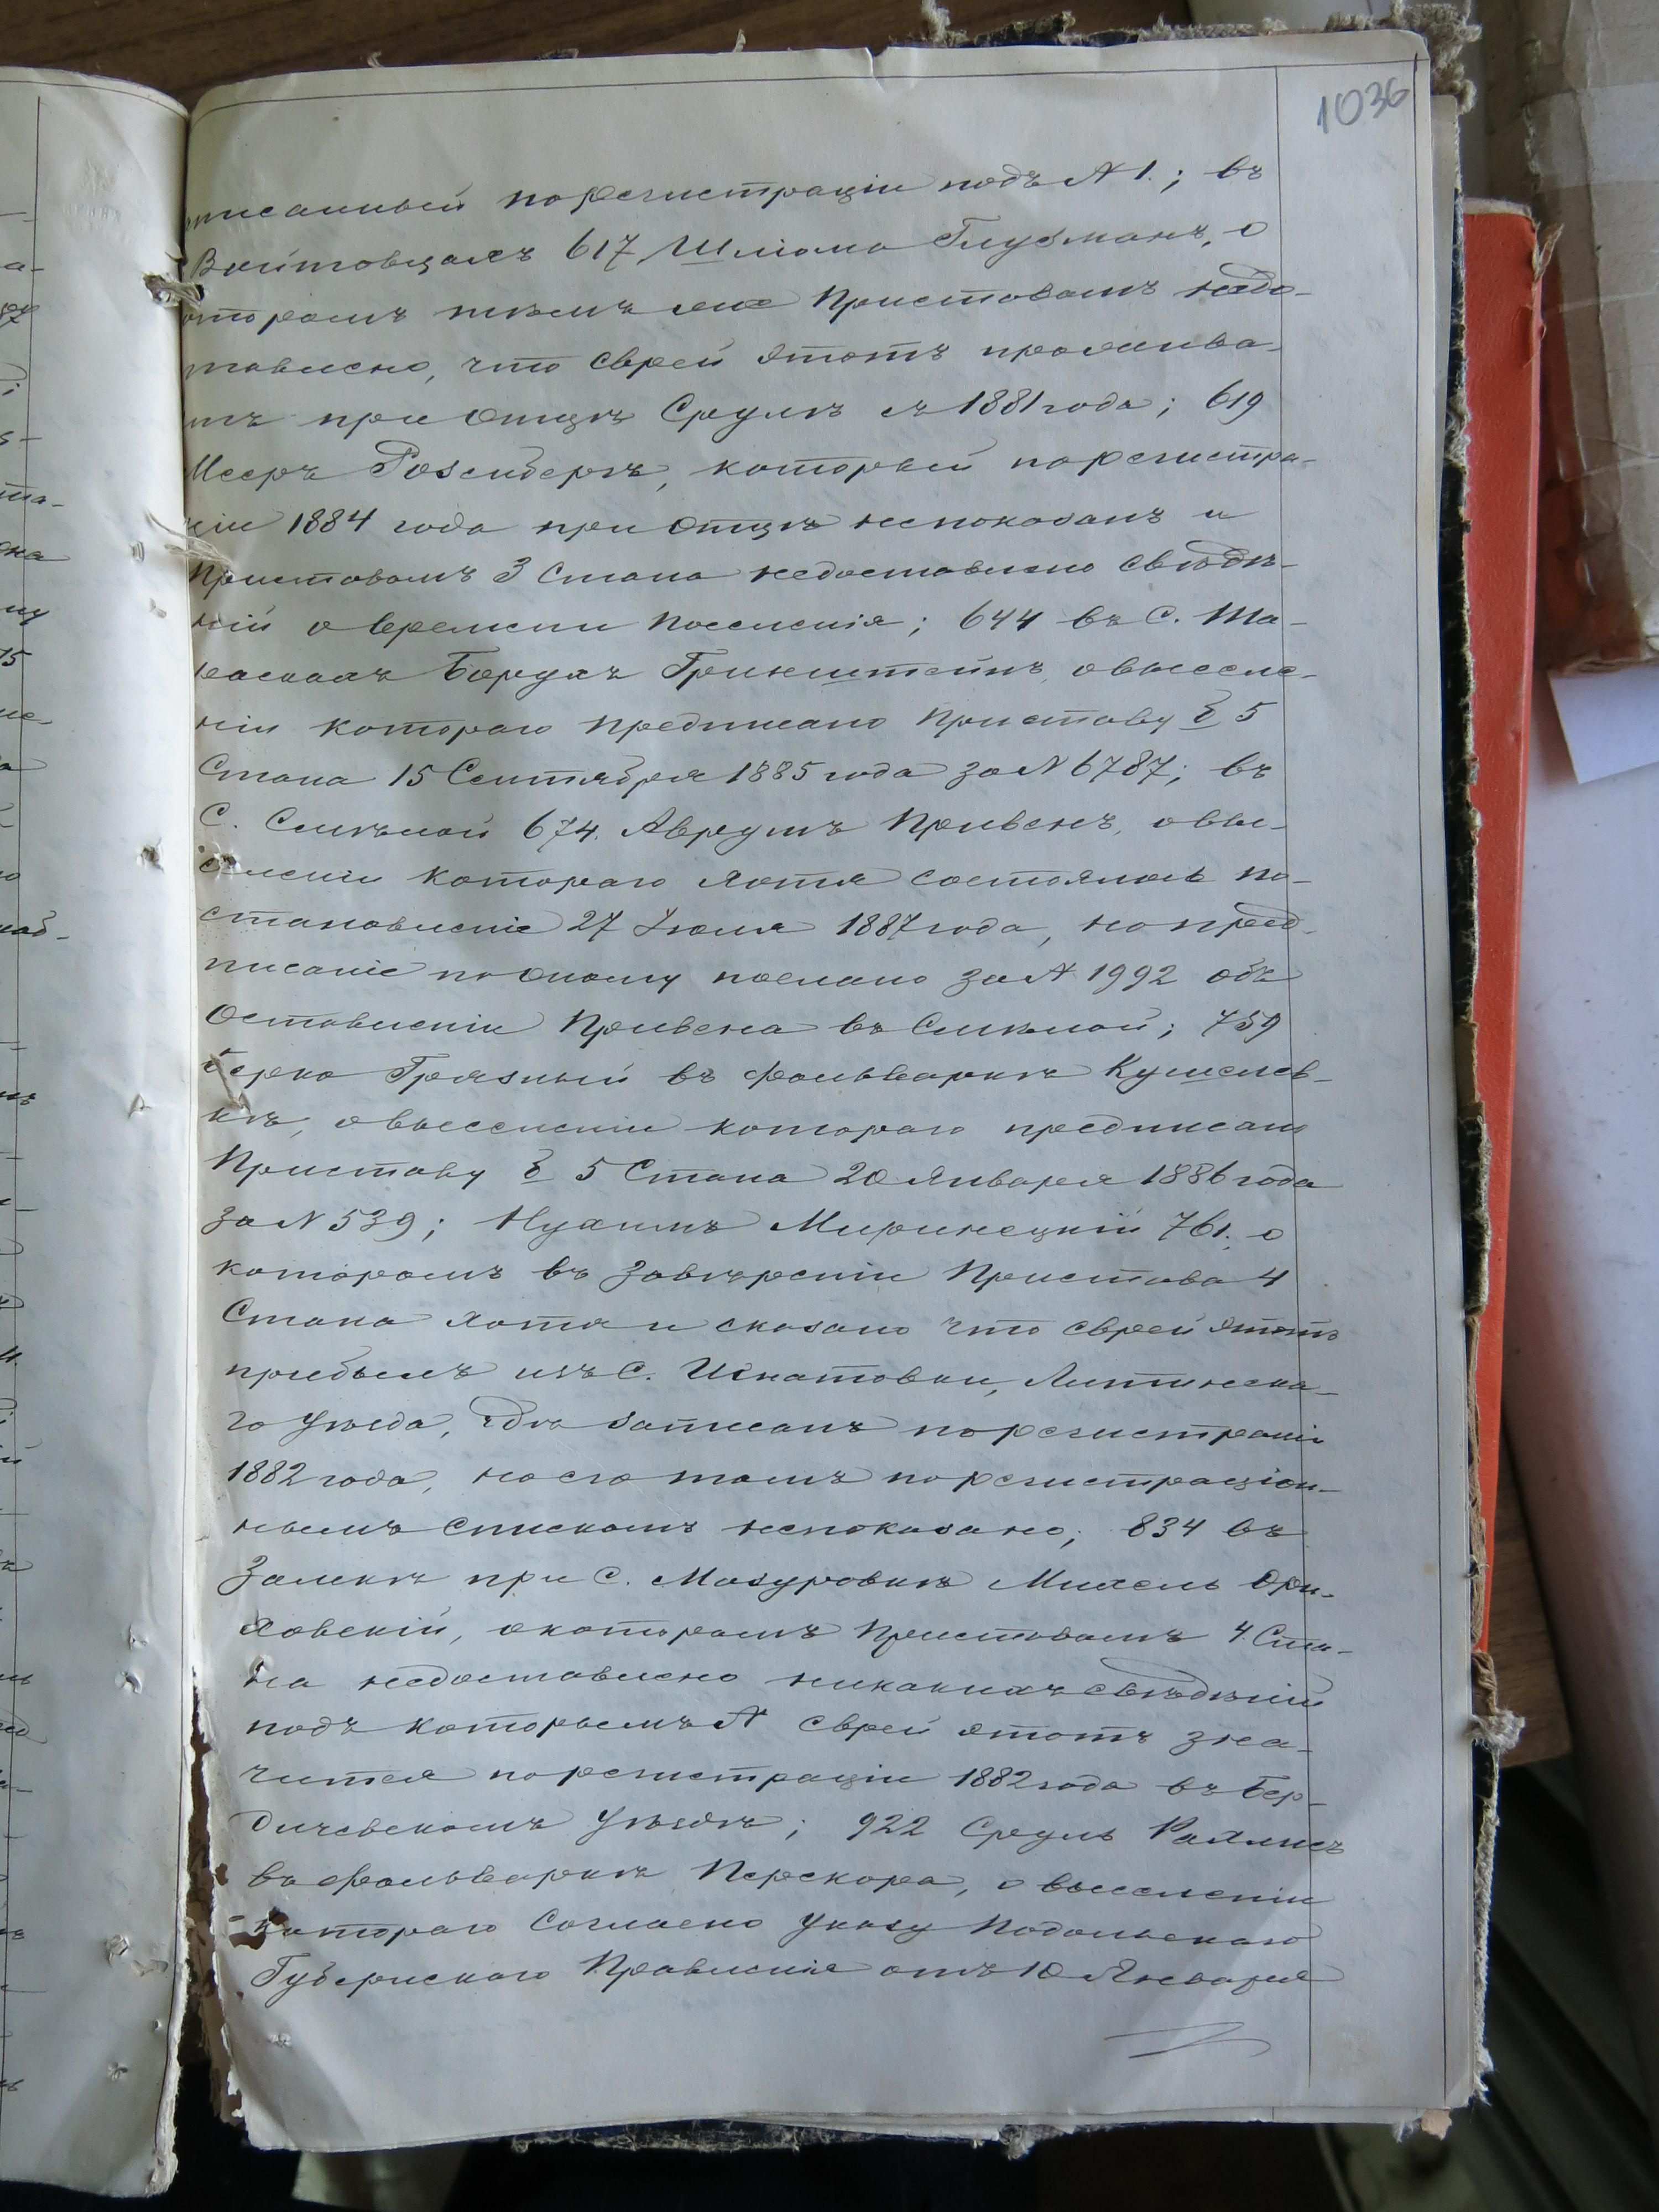 1036
писанный по регистраціи подъ № 1.; въ
Войтовцахъ 617, Шліома Глузманъ, о
оторомъ тѣмъ же Приставомъ недо-
тавлено, что еврей этотъ прожива-
тъ при Отцѣ Срулѣ съ 1881 года; 619
Мееръ Розенбергъ, который по регистра-
ціи 1884 года при Отцѣ непоказанъ и
Приставомъ 3 Стана недоставлено свѣдѣ-
ній о времени поселенія; 644 въ С. Та-
Борухъ Гринштейнъ, о выселе-
ніи котораго предписано Приставу б 5
Стана 15 Сентября 1885 года за № 6787; въ
С. Снѣжной 674. Аврумъ Привенъ, о вы-
селеніи котораго хотя состоялось по-
становленіе 27 Іюля 1887 года, но пред-
писаніе по оному послано за № 1992 объ
Оставленіи Привена въ Снѣжной; 759
Берко Грязный въ фольваркѣ Кумелев-
кѣ, о выселеніи котораго предписано
Приставу б 5 Стана 20 Января 1886 года
за № 539; Нухимъ Миринецкій 761. о
которомъ въ завѣреніи Пристава 4
Стана хотя и сказано что еврей этотъ
прибылъ изъ С. Игнатовки, Литинска-
го уѣзда, гдѣ записанъ по регистраціи
1882 года, но его тамъ по регистраціон-
нымъ спискомъ непоказано; 834 въ
Замкѣ при С. Мазуровкѣ Михель Ори-
ховскій, о которомъ Приставомъ 4. Ста-
на недоставлено никакихъ свѣдѣній
подъ которымъ № еврей этотъ зна-
чится по регистраціи 1882 года въ Бер-
дичевскомъ уѣздѣ; 922 Сруль Рахлисъ
въ фольваркѣ Перекора, о выселеніи
котораго Согласно указу Подольскаго
Губернскаго Правленія отъ 10 Января